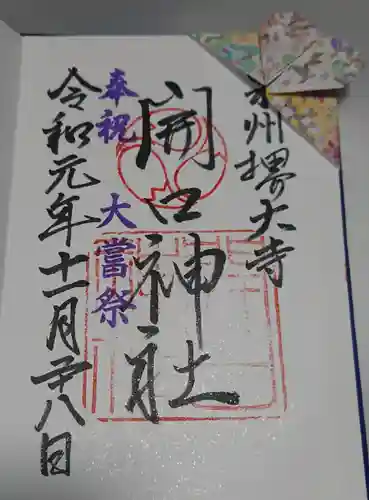 泉州堺大寺
開口神社
奉祝 大嘗祭
令和元年十一月二十八日